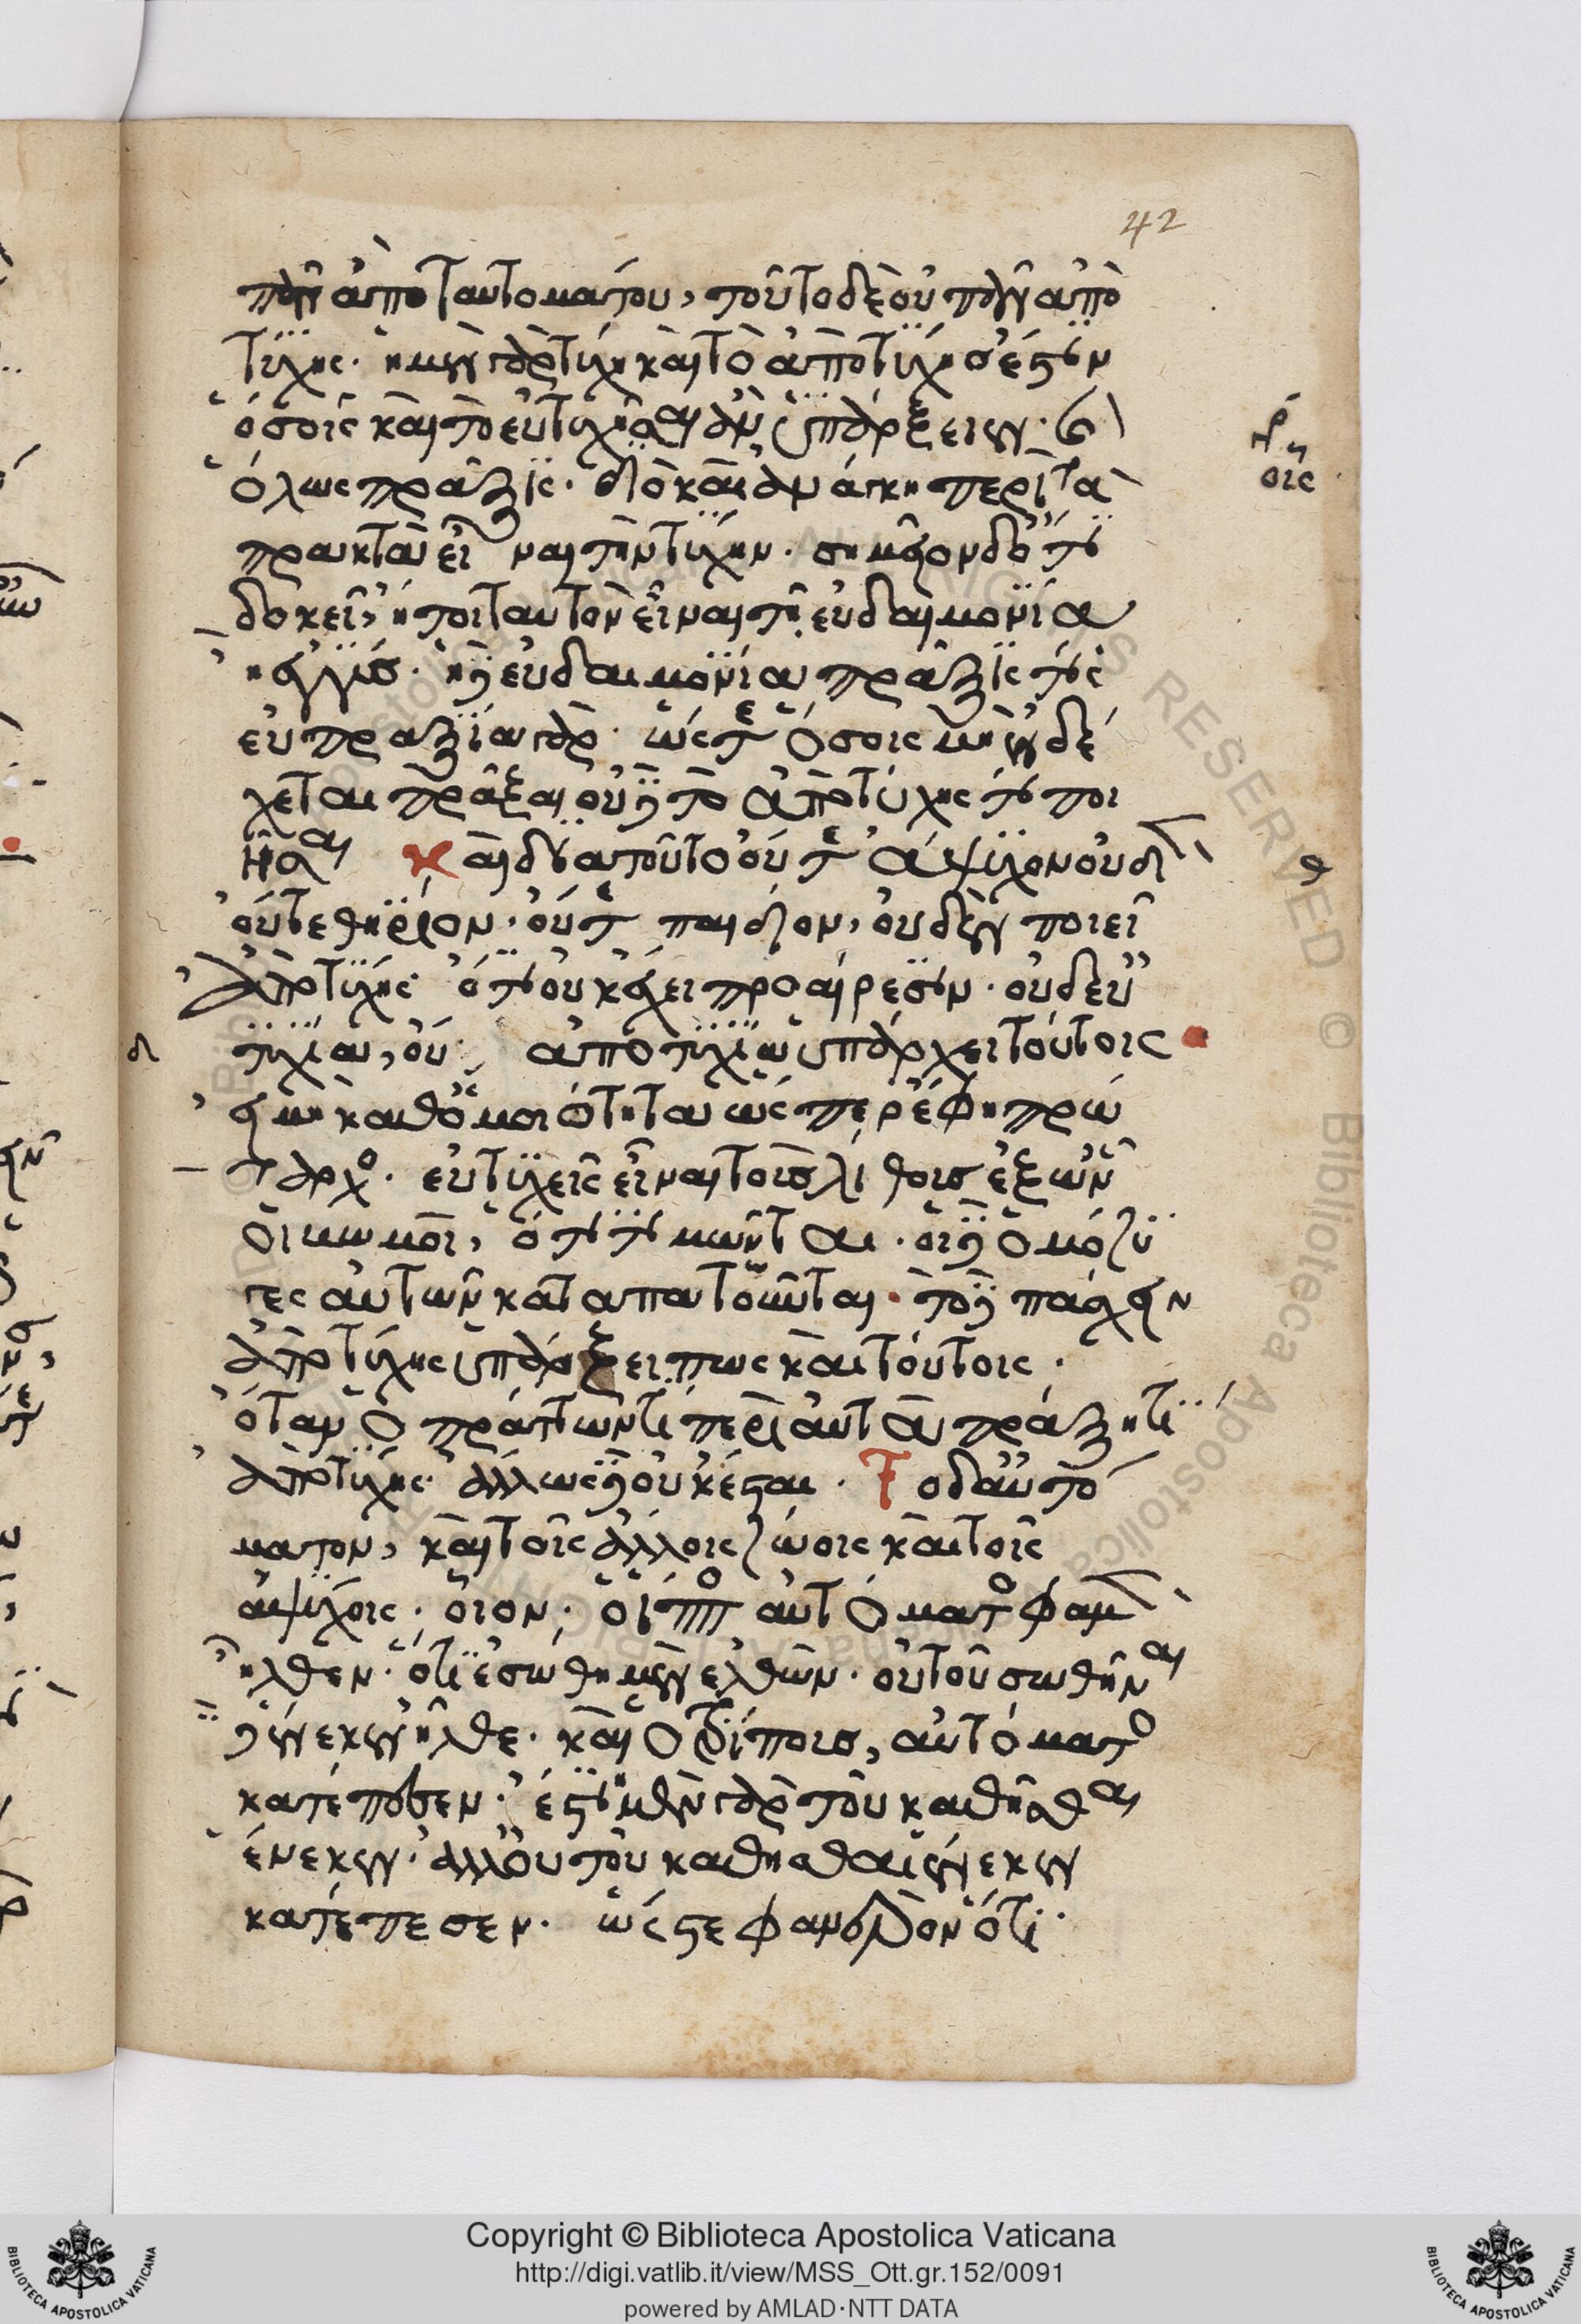 42
πᾶν ἀπὸ ταυτομάτου, τοῦτο δὲ οὐ πᾶν ἀπὸ
τύχης. ἡ μὲν γὰρ τύχη καὶ τὸ ἀπὸ τύχης ἐστὶν
ὅσοις καὶ τὸ εὐτυχῆσαι ἂν ὑπάρξειεν. καὶ
ὅλως πρᾶξις. διὸ καὶ ἀνάγκη περὶ τὰ
πρακτὰ εἶναι τὴν τύχην. σημεῖον δ' ὅτι
δοκεῖ, ἤτοι ταυτὸν εἶναι τῇ εὐδαιμονίᾳ
ἢ ἐγγύς. ἡ δὲ εὐδαιμονία πρᾶξίς τις
εὐπραξία γάρ. ὥστε ὅσοις μὴ ἐνδέ
χεται πρᾶξαι οὐδὲ τὸ ἀπὸ τύχης τι ποι
ῆσαι Καὶ διὰ τοῦτο οὔτε ἄψυχον οὐδὲν
οὔτε θηρίον. οὔτε παιδίον, οὐδὲν ποιεῖ
ἀπὸ τύχης ὅτι οὐκ ἔχει προαίρεσιν. οὐδ' εὐ
τυχία, οὐ ἀποτυχία ὑπάρχει τούτοις
εἰ μὴ καθ' ὁμοιότητα ὥσπερ ἔφη πρώ
ταρχος. εὐτυχεῖς εἶναι τοὺς λίθους ἐξ ὧν
οἱ βωμοί, ὅτι τιμῶνται. οἱ δὲ ὁμόζυ
γες αὐτῶν καταπατοῦνται. τὸ δὲ πάσχειν
ἀπὸ τύχης ὑπάρξει πως καὶ τούτοις.
ὅταν ὁ πράττων τι περὶ αὐτὰ πράξῃ τι
ἀπὸ τύχης ἄλλως δὲ οὐκ ἔσται. Τὸ δ' αὐτό
ματον, καὶ τοῖς ἄλλοις ζώοις καὶ τοῖς
ἀψύχοις. οἷον. ὁ ἵππος αὐτόματος φαμὲν
ἦλθεν. ὅτι ἐσώθη μὲν ἐλθών. οὐ τοῦ σωθῆναι
δὲ ἕνεκεν ἦλθε. καὶ ὁ τρίπους, αὐτόματος
κατέπεσεν. ἔστη μὲν γὰρ τοῦ καθῆσθαι
ἕνεκεν. ἀλλ' οὐ τοῦ καθῆσθαι ἕνεκεν
κατέπεσεν. ὥστε φανερὸν ὅτι.